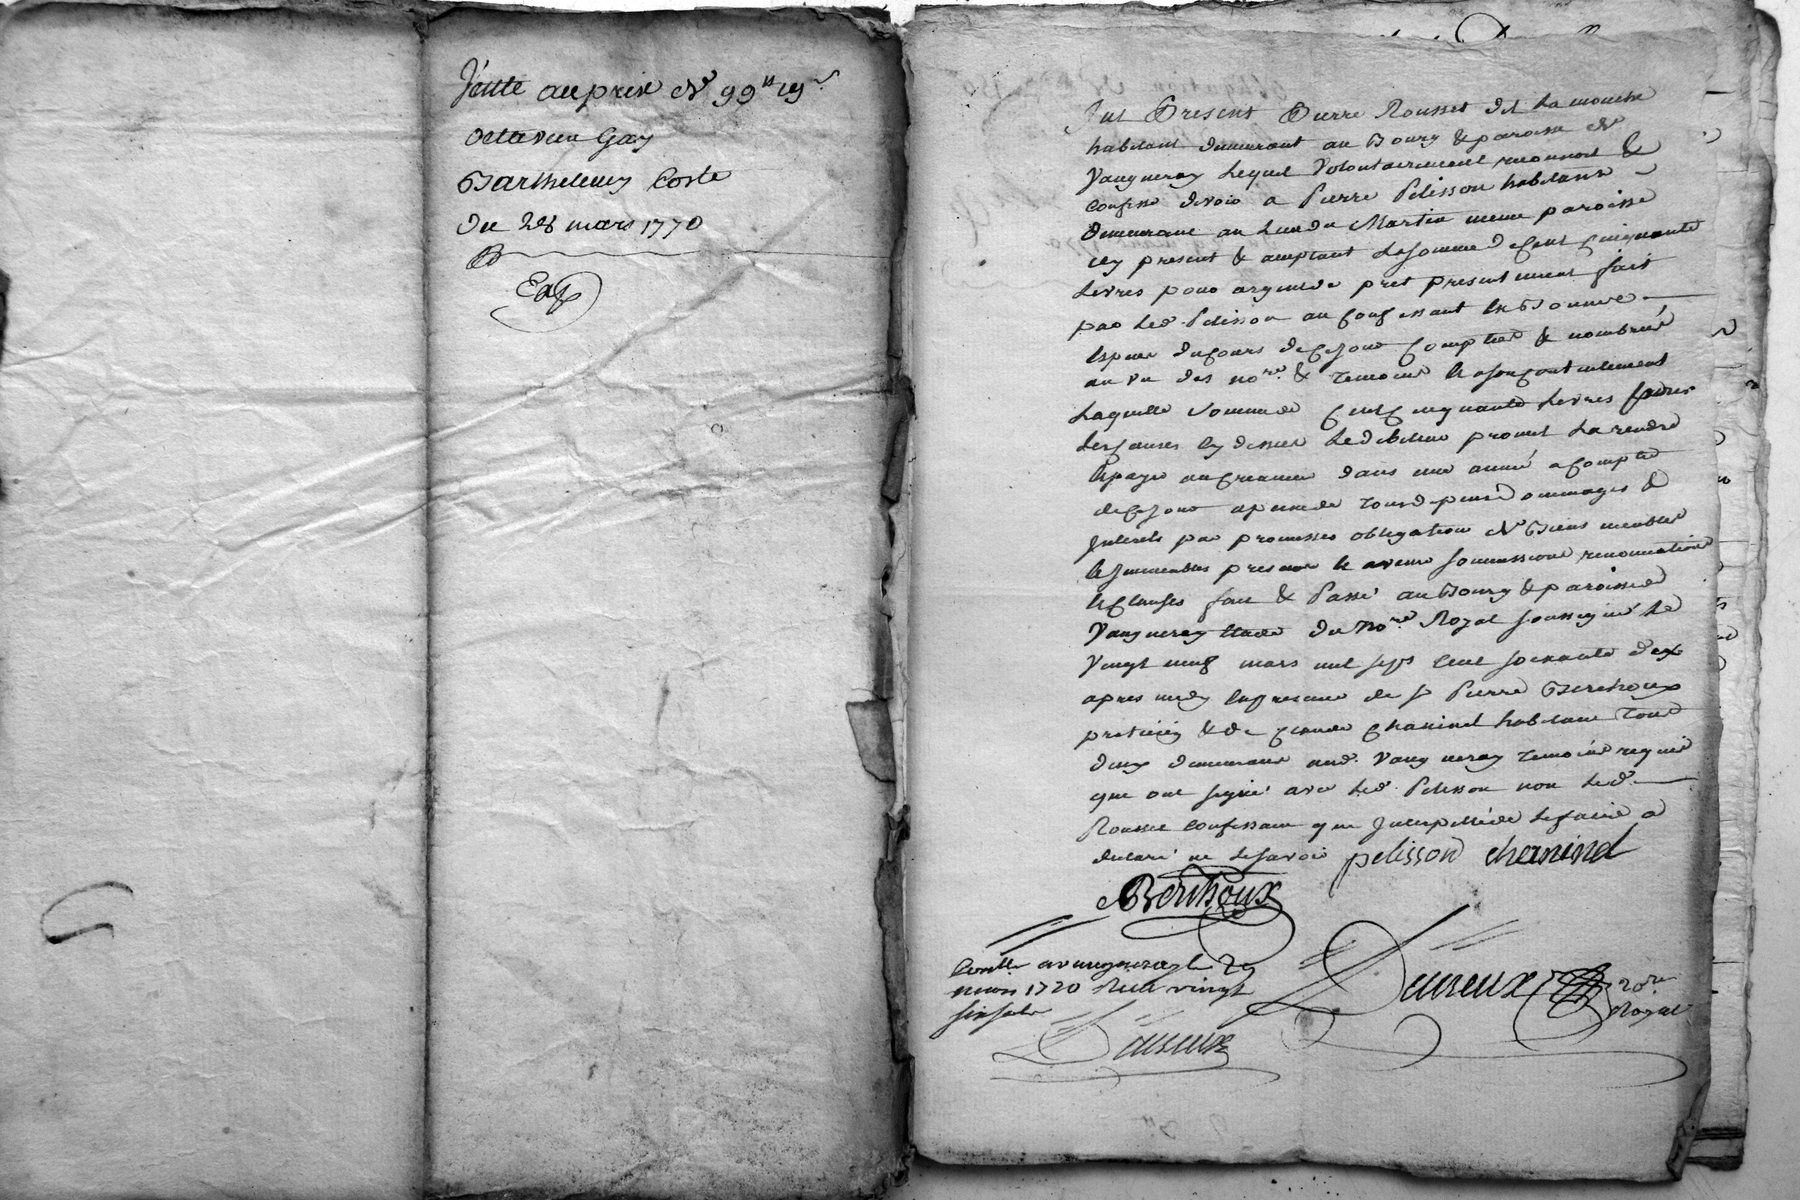 Vente au prix de 99ᵗᵗ 19ˢ
Octavien Gay
Barthelemy Coste
Du 28 mars 1770
Exp
Fut Present Pierre Rousset dit La mouche
habitant demeurant au Bourg & paroisse de
Vaugneray Lequel Volontairement reconnoit &
confesse devoir a Pierre Pelisson habitant
demeurant au Lieu du Martin meme paroisse
icy present & acceptant La somme de Cent Cinquante
Livres pour argent de pret presentement fait
par Led. Pelisson au confessant en Bonnes
especes du cours de ce jour Comptées & nombrées
au vu des noʳᵉ & temoins
Laquelle somme de Cent Cinquante Livres pour
Les causes cy dessus Le debiteur promet La rendre
& payer au creancier dans une année a compter
de ce jour a peine de tous depens dommages &
Interets par promesses obligation de Biens meubles
& Immeubles presens & avenir soumissions renonciations
& Clauses fait & Passé au Bourg & paroisse de
Vaugneray etude du Noʳᵉ Royal soussigné Le
Vingt neuf mars mil sept Cent soixante dix
apres midy En presence de sʳ Pierre Berthoux
praticien & de Claude Chanind habitans Tous
deux demeurans aud. Vaugneray temoins requis
qui ont signé avec Led. Pelisson non Led.
Rousset Confessant que Interpellé de Le faire a
declaré ne Le savoir pelisson chanind
Berthoux
Conllé a vaugneray le 29
mars 1770 Reçu vingt
six sols
Dureux noʳᵉ
Royal
Dureux